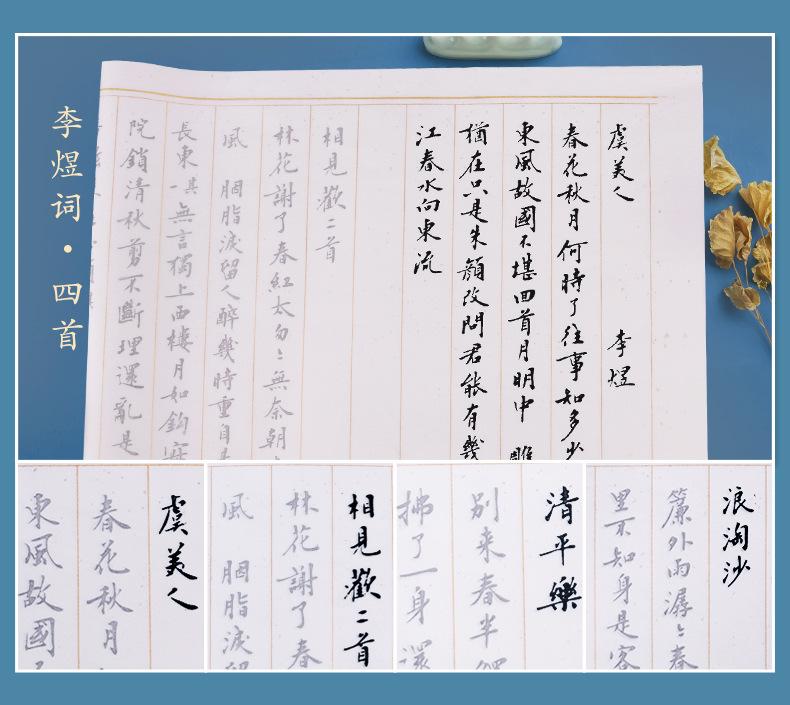 李煜词·四首
虞美人 李煜
春花秋月何時了往事知多少
東風故國不堪回首月明中 雕
猶在只是朱顔改問君能有幾
江春水向東流
相見歡二首
林花謝了春紅太匆〻無奈朝
風 胭脂淚留人醉幾時重自是
長東 其一 無言獨上西樓月如鉤寂
院鎖清秋剪不斷理還亂是
虞美人
春花秋月
東風故國
相見歡二首
林花謝了春
風 胭脂淚留
清平樂
别来春半
拂了一身還
浪淘沙
簾外雨潺〻春
里不知身是客